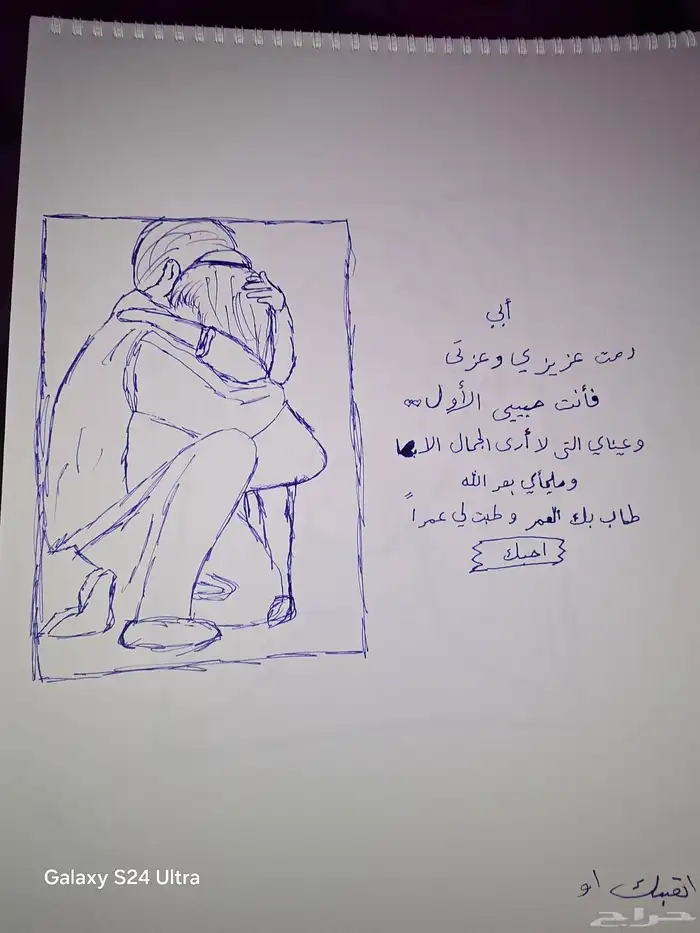 أبي
دمت عزيزي وعزتي
فأنت حبيبي الأول
وعيناي التي لا أرى الجمال الا بها
وملجأي بعد الله
طاب بك العمر وطبت لي عمراً
احبك
Galaxy S24 Ultra
او
حراج